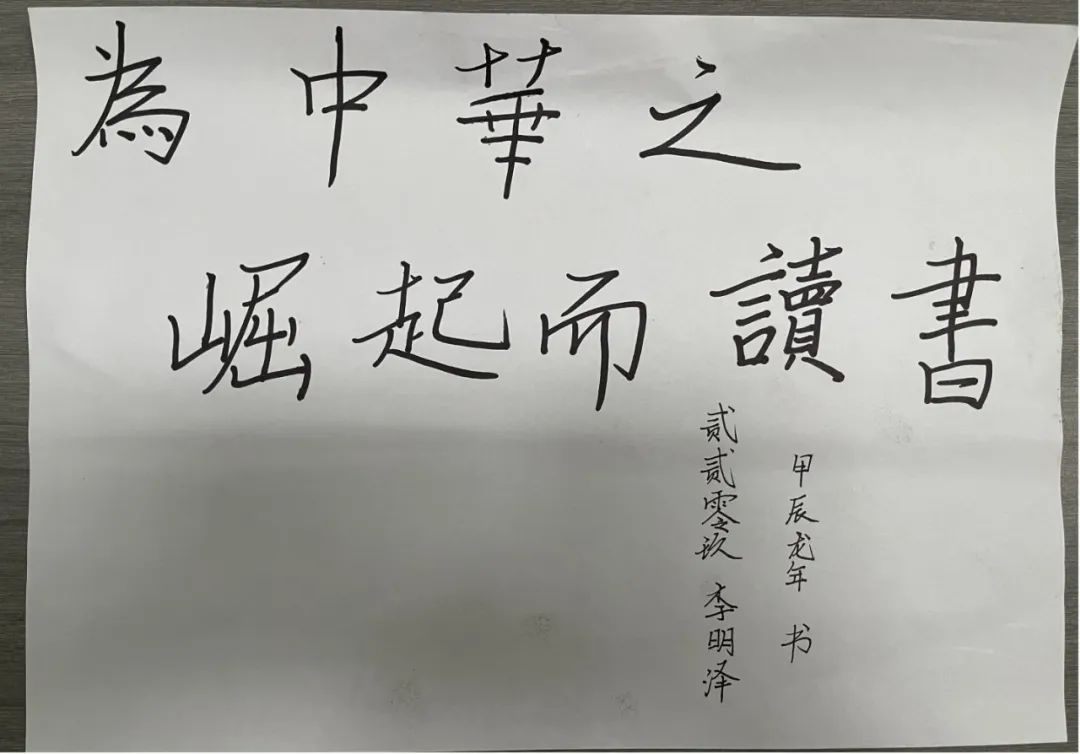 為中華之
崛起而讀書
甲辰龙年 书
贰贰零玖 李明泽